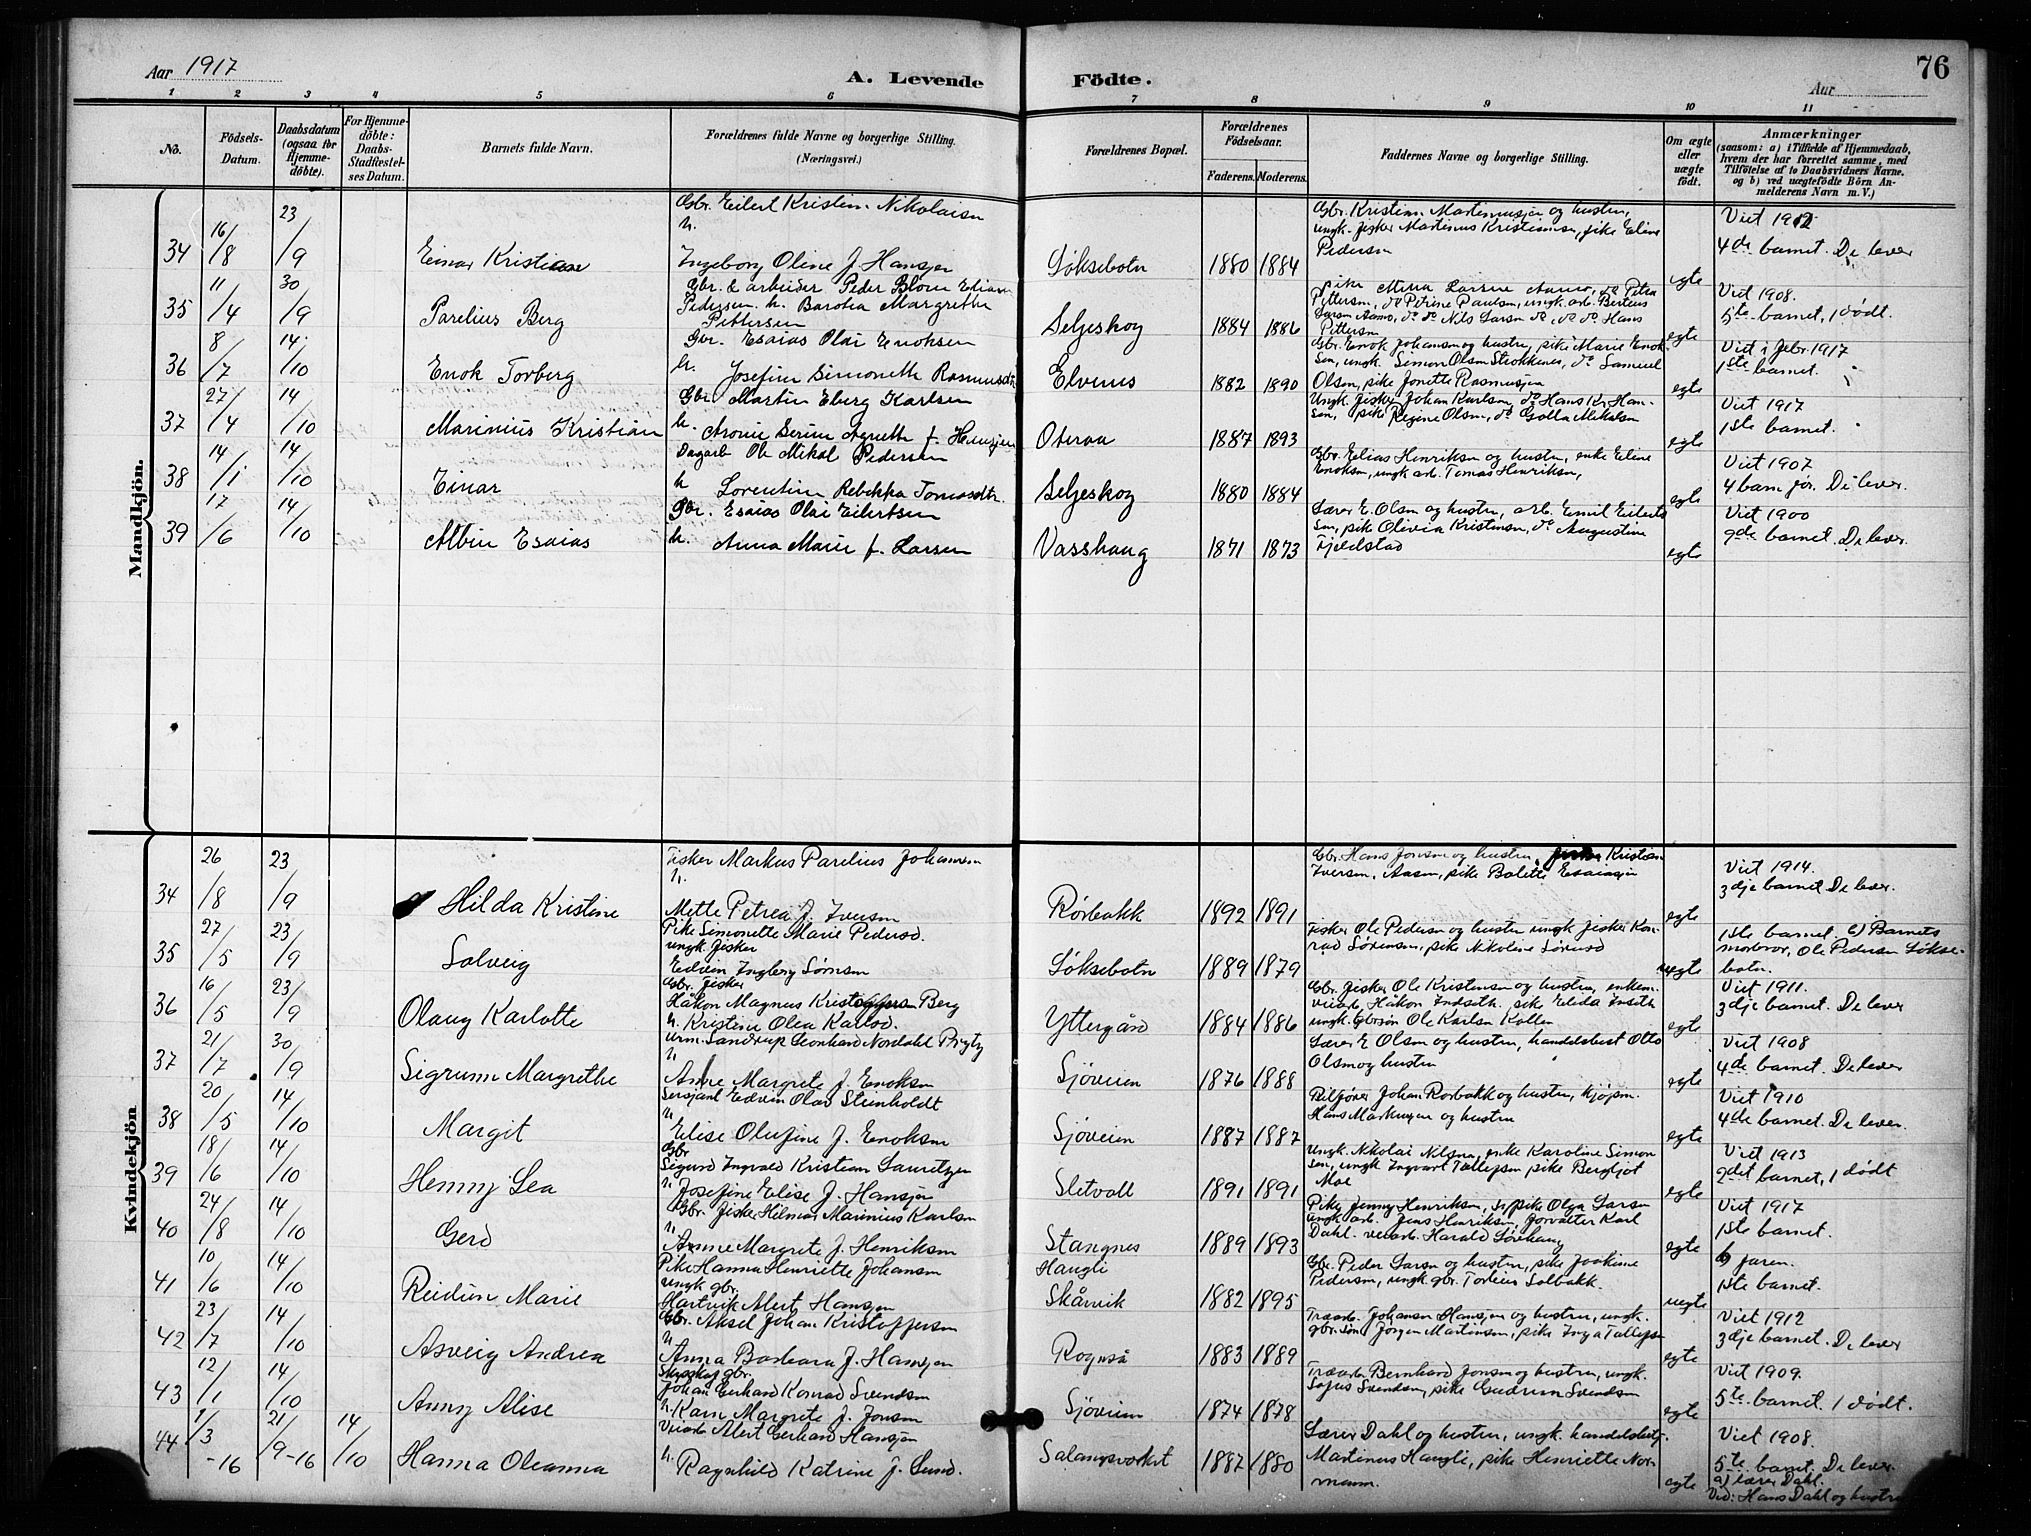 Aar 1917
A. Levende
Födte.
76
Aar
1 2 3 4 5 6 7 8 9 10 11
No.
Födsels-Datum.
Daabsdatum (ogsaa for Hjemme-döbte).
For Hjemme-döbte: Daabs-Stadfæstel-ses Datum.
Barnets fulde Navn.
Forældrenes fulde Navne og borgerlige Stilling.
(Næringsvei.)
Forældrenes Bopæl.
Forældrenes Födselsaar.
Faderens. Moderens.
Faddernes Navne og borgerlige Stilling.
Om ægte eller uægte födt.
Anmærkninger
(saasom: a) i Tilfælde af Hjemmedaab,
hvem der har forrettet samme, med
Tilföielse af to Daabsvidners Navne,
og b) ved uægtefödte Börn An-
melderens Navn m. V.)
Mandkjön.
34 16/8 23/9 Einar Kristian
Gbr. Eilert Kristian Nikolaisen
h.
Ingeborg Oline f. Hansen
Löksebotn 1880 1884
Gbr. Kristian Martinussen og hustru,
ungk. fisker Martinus Kristiansen, pike Eline
Pedersen
egte
Viet 1912
4de barnet. De lever
35 11/4 30/9 Parelius Berg
Gbr. & arbeider Peder Blom Edias
Pedersen h. Barotea Margrethe
Pettersen
Seljeskog 1884 1886
pike Mina Larsen Aamo, do Petra
Pettersen, do Petrine Paulsen, ungk. arb. Berteus
Larsen Aamo, do do Nils Larsen do, do do Hans
Pettersen
egte
Viet 1908.
5te barnet, 1 dödt.
36 8/7 14/10 Enok Torberg
Gbr. Esaias Olai Enoksen
h. Josefine Simonette Rasmusdtr
Elvenes 1882 1890
Gbr. Enok Johansen og hustru, pike Marie Enok-
sen, ungk. Simon Olsen Strokkenes, do Samuel
Olsen, pike Jonette Rasmussen
egte
Viet i febr. 1917
1ste barnet.
37 27/4 14/10 Marinius Kristian
Gbr. Martin Eberg Karlsen
h. Aronie Serine Agnette f. Hansen
Oteraa 1887 1893
Ungk. fisker Johan Karlsen, do Hans Kr. Han-
sen, pike Regine Olsen, do Golla Mikalsen
egte
Viet 1917
1ste barnet.
38 14/1 14/10 Einar
Dagarb. Ole Mikal Pedersen
h Lorentine Rebekka Tomasdtr.
Seljeskog 1880 1884
Gbr. Elias Henriksen og hustru, enke Eline
Enoksen, ungk. arb. Tomas Henriksen,
egte
Viet 1907
4 barn för. De lever.
39 17/6 14/10 Albin Esaias
Gbr. Esaias Olai Eilertsen
h. Anna Marie f. Larsen
Vasshaug 1871 1873
Lærer E. Olsen og hustru, arb. Emil Eilert-
sen, pike Olivia Kristensen, do Augustine
Fjeldstad
egte
Viet 1900
9de barnet. De lever.
Kvindekjön
34 26/8 23/9 Hilda Kristine
Fisker Markus Parelius Johansen
h.
Mette Petrea f. Iversen
Rörbakk 1892 1891
Gbr. Hans Jonsen og hustru, Kristian
Iversen, Aasen, pike Bolette Esaiassen
egte
Viet 1914.
3dje barnet. De lever.
35 27/5 23/9 Solveig
Pike Simonette Marie Pedersd.
ungk. fisker
Edvin Ingberg Sörensen
Löksebotn 1889 1879
Fisker Ole Pedersen og hustru ungk. fisker Kon-
rad Sörensen, pike Nikoline Sörensd
uegte
1ste barnet. b) Barnets
morbror, Ole Pedersen Lökse-
botn.
36 16/5 23/9 Olaug Karlotte
Gbr. fisker
Håkon Magnus Kristoffersen Berg
h. Kristine Olea Karlsd.
Yttergård 1884 1886
Gbr. fisker Ole Kristensen og hustru, enkem.
veiarb. Håkon Indseth. pike Elida Inseth
ungk. Gbrsön Ole Karlsen Kollen
egte
Viet 1911.
3dje barnet. De lever
37 21/7 30/9 Sigrunn Margrethe
Urm. Sandrup Leonhard Nordahl Prigty
h
Anne Margrete f. Enoksen
Sjöveien 1876 1888
Lærer E Olsen og hustru, handelsbest Otto
Olsen og hustru
egte
Viet 1908
4de barnet. De lever
38 20/5 14/10 Margit
Sersjant Edvin Olav Steinholdt
h
Elise Olufine f. Enoksen
Sjöveien 1887 1887
Bilförer Johan Rorbakk og hustru, kjöpm.
Hans Markussen og hustru
egte
Viet 1910
4de barnet. De lever.
39 18/6 14/10 Henny Lea
Gbr
Sigurd Ingvald Kristian Lauritzen
h. Josefine Elise f. Hansen
Sletvoll 1891 1891
Ungk. Nikolai Nilsen, enke Karoline Simon
sen, ungk Ingvart Tollefsen pike Bergljot
Moe
egte
Viet 1913
2det barnet, 1 dödt
40 24/8 14/10 Gerd
Gbr. fisker Hilmar Marinius Karlsen
h.
Anne Margrete f. Henriksen
Stangnes 1889 1893
Pike Jenny Henriksen, pike Olga Larsen
ungk arb. Jens Henriksen, forvalter Karl
Dahl. veiarb. Harald Lörhaug
egte
Viet 1917
1ste barnet.
41 10/6 14/10 Reidun Marie
Pike Hanna Henriette Johansen
ungk gbr.
Hartvik Alert Hansen
Haugli
Skårvik 1882 1895
Gbr. Peder Larsen og hustru, pike Joakime
Pedersen, ungk gbr. Torleius Solbakk.
uegte
b) faren.
1ste barnet.
42 23/7 14/10 Asveig Andrea
Gbr. Aksel Johan Kristoffersen
h
Anna Barbara f. Hansen
Rognså 1883 1889
Træarb. Johanes Hansen og hustru, ungk.
gbr. sön Jörgen Martinsen, pike Inga Tollefsen
egte
Viet 1912
3dje barnet. De lever
43 12/1 14/10 Anny Alise
gbr.
Johan Gerhard Konrad Svendsen
h. Karn Margrete f. Jonsen
Sjöveien 1874 1878
Træarb. Bernhard Jonsen og hustru, ungk.
Sofus Svendsen, pike Gudrun Svendsen
egte
Viet 1909.
5te barnet. 1 dödt.
44 1/3-16 21/9-16 14/10 Hanna Oleanna
Veiarb. Alert Gerhard Hansen
h. Ragnhild Katrine f. Lund.
Salangsverket 1887 1880
Lærer Dahl og hustru, ungk. handelsbetj.
Martinus Haugli, pike Henriette Nor-
mann.
egte
Viet 1908.
5te barnet. De lever.
a) lærer Dahl.
Vid: Hans Dahl og hustru